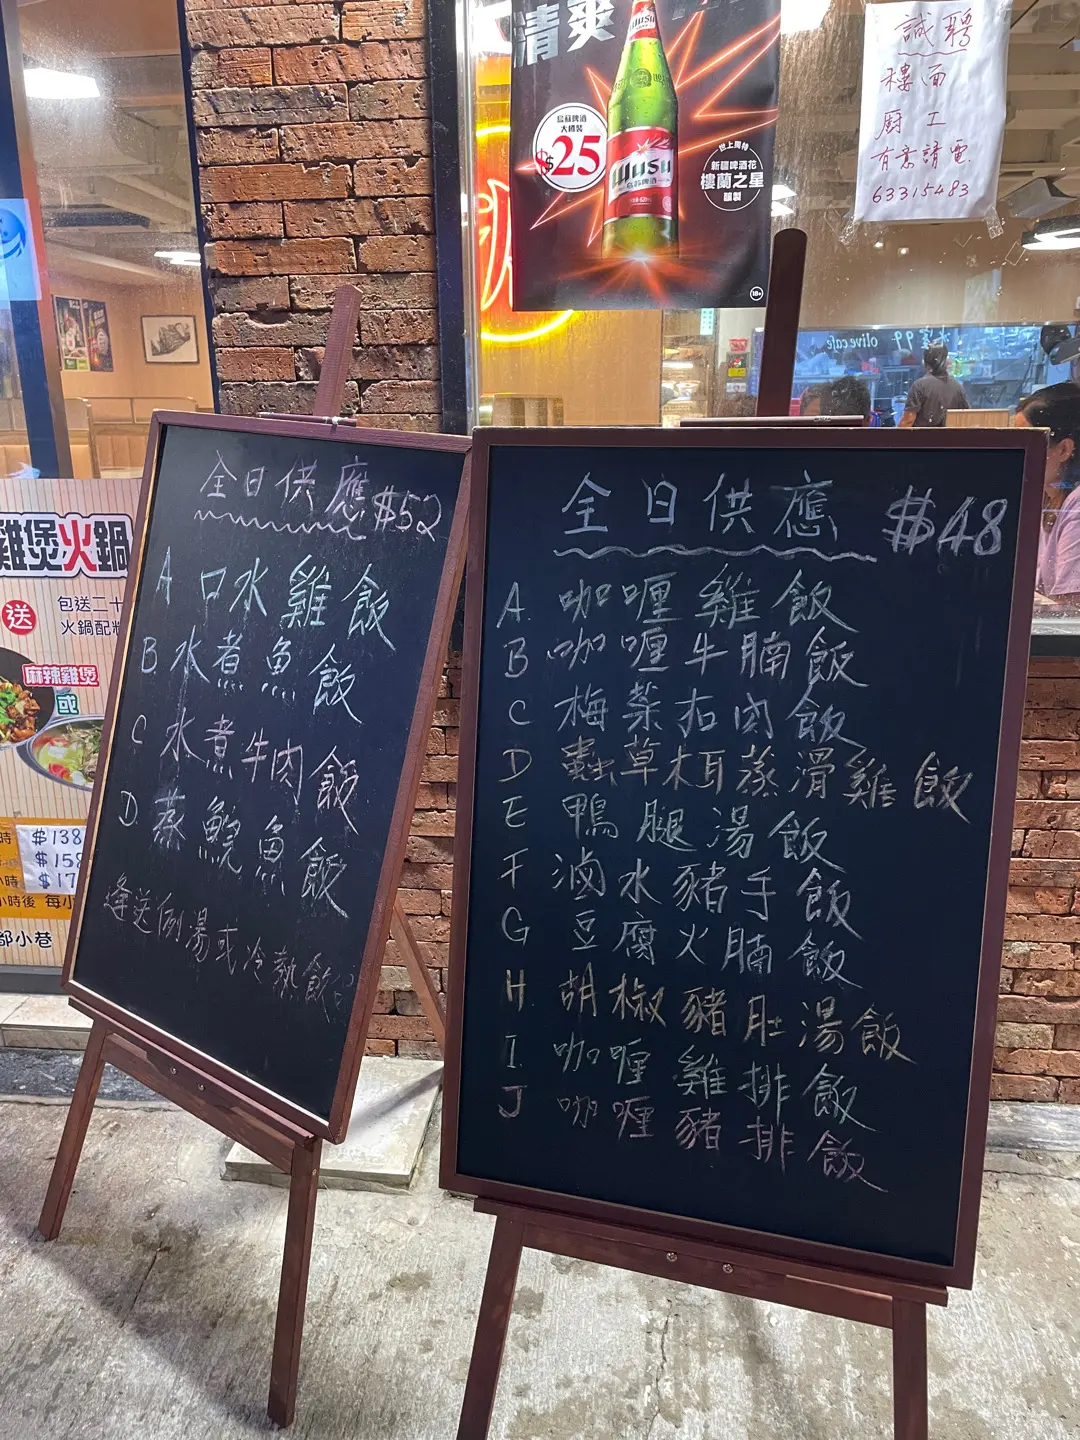 清爽
烏蘇啤酒
大樽裝
$25
WUSU
烏蘇啤酒
世上獨特
新疆啤酒花
樓蘭之星
釀製
18+
誠聘
樓面
廚工
有意請電
63315483
olive cafe
雞煲火鍋
送
包送二十
火鍋配料
麻辣雞煲
或
$138
$158
$17
小時後 每小
都小巷
全日供應 $52
A 口水雞飯
B. 水煮魚飯
C 水煮牛肉飯
D. 蒸鯇魚飯
逢送例湯或冷熱飲品
全日供應 $48
A. 咖喱雞飯
B 咖喱牛腩飯
C 梅菜扣肉飯
D 蟲草木耳蒸滑雞飯
E 鴨腿湯飯
F 滷水豬手飯
G 豆腐火腩飯
H. 胡椒豬肚湯飯
I. 咖喱雞排飯
J 咖喱豬排飯